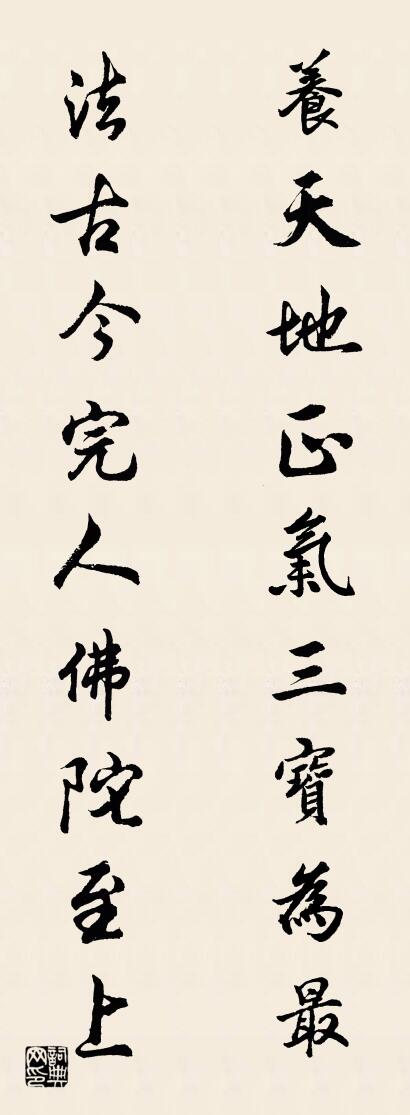 養天地正氣三寶為最
法古今完人佛陀至上
詞典
网印